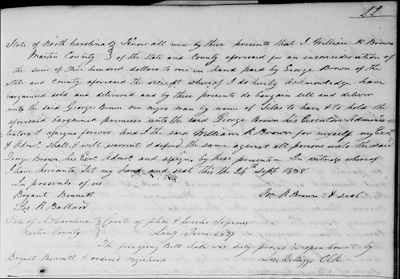 State of North Carolina } Know all men by these presents that I William R Brown
Martin County } of the State and County aforesaid for an in consideration of
the sum of five hundred dollars to me in hand paid by George Brown of the
State and County aforesaid the receipt whereof I do hereby acknowledge have
bargained sold and delivered and by these presents do bargain sell and deliver
unto the said George Brown one negro man by name of Silas to have & to hold the
aforesaid bargained premises unto the said George Brown his Executors Adminis
trators & assigns forever. And I the said William R Brown for myself my Exrs
& Admrs shall & will warrant & defend the same against all persons unto the said
George Brown his Exrs Admrs and assigns by these presents In witness whereof
I have hereunto set my hand and seal this the 24th Sept 1838
In presents of us
Bryant Bennett Wm R Brown & seal
R Ballard
State of N Carolina } Court of pleas & quarter Sessions
Martin County }
The foregoing Bill Sale was duly proven in open court by
Bryant Bennett & ordered registered